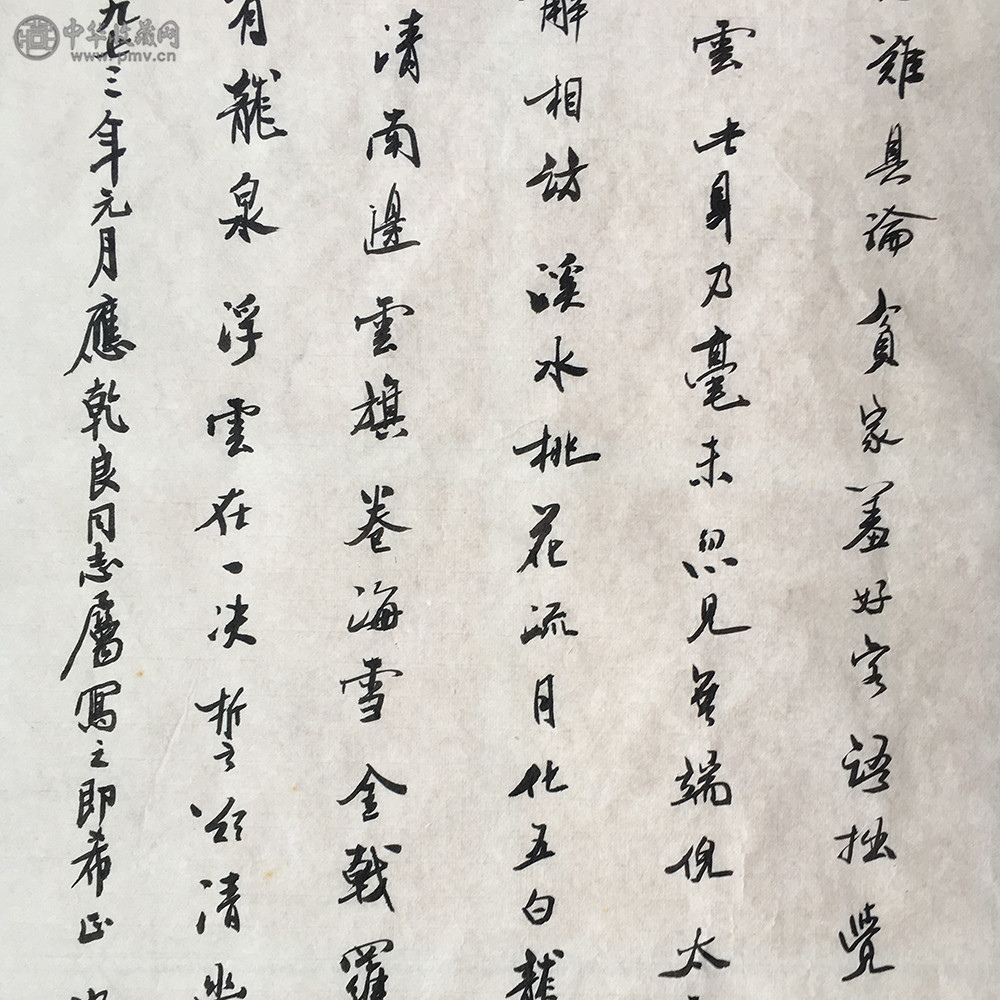 難具論貧家羞好客語拙覺
雲此身乃毫末忽見無端倪太
解相訪溪水桃花流月化五白龍
清南邊雲旗卷海雪金戟羅
有龍泉浮雲在一決誓欲清幽
九七三年元月應乾良同志屬寫之即希正
中华收藏网
www.pmv.cn